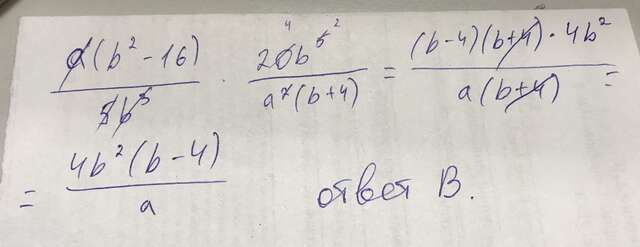 a(b² - 16) / 5b³ · 20b⁵ / a²(b+4) = (b-4)(b+4) · 4b² / a(b+4) =
= 4b²(b-4) / a ответ В.